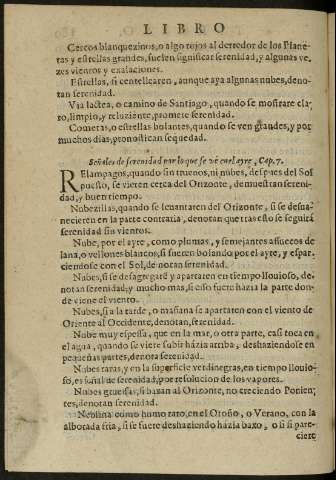 LIBRO
Cercos blanquezinos, o algo rojos al derredor de los Plane
tas y estrellas grandes, suelen significar serenidad, y algunas ve
zes vientos y exalaciones.
Estrellas, si centellearen, aunque aya algunas nubes, deno-
tan serenidad.
Via lactea, o camino de Santiago, quando se mostrare cla,
ro, limpio, y reluziente, promete serenidad.
Cometas, o estrellas bolantes, quando se ven grandes, y por
muchos dias, pronostican sequedad.
Señales de serenidad por lo que se vè en el ayre, Cap. 7.
RElampagos, quando sin truenos, ni nubes, despues del Sol
puesto, se vieren cerca del Orizonte, demuestran sereni-
dad, y buen tiempo.
Nubezillas, quando se leuantaren del Orizonte, si se desua-
necieren en la parte contraria, denotan que tras esto se seguirà
serenidad sin vientos.
Nube, por el ayre, como plumas, y semejantes a fluecos de
lana, o vellones blancos, si fueren bolando por el ayre, y espar,
ciendose con el Sol, denotan serenidad.
Nubes, si se desagregarè y apartaren en tiempo llouioso, de-
notan serenidad; y mucho mas, si esso fuere hazia la parte don-
de viene el viento.
Nubes, si a la tarde, o mañana se apartaren con el viento de
Oriente al Occidente, denotan, serenidad.
Nube muy espessa, que en la mar, o otra parte, casi toca en
el agua, quando se viere subir hàzia arriba; deshaziendose en
pequeñas partes, denota serenidad.
Nubes raras, y en la superficie verdinegras, en tiempo llouio-
so, es señal de serenidad, por resolucion de los vapores.
Nubes gruessas, si baxan al Orizonte, no creciendo Ponien-
tes, denotan serenidad.
Neblina como humo raro, en el Otoño, o Verano, con la
alborada fria, si se fuere deshaziendo hàzia baxo, o si si pare-
ciere